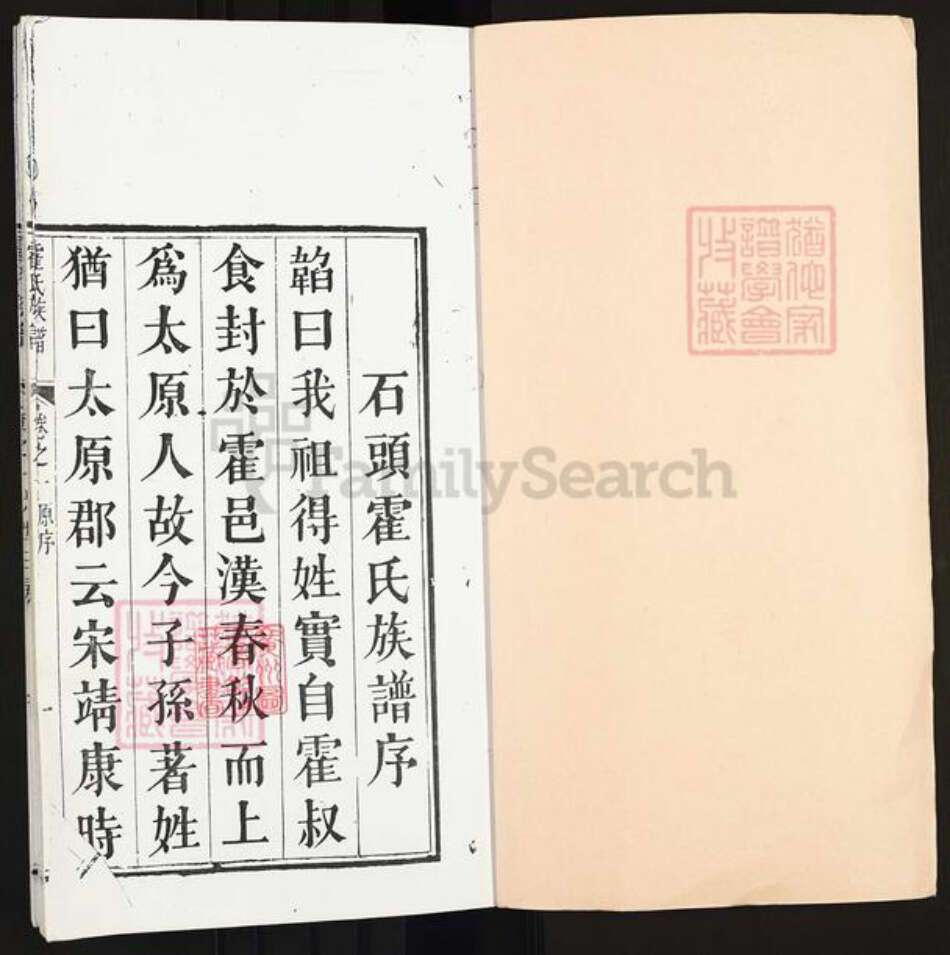 石頭霍氏族譜序
韜曰我祖得姓實自霍叔
食封於霍邑漢春秋而上
為太原人故今子孫著姓
猶曰太原郡云宋靖康時
霍氏族譜 卷之一 原序
猶他家
譜學會
收藏
FamilySearch